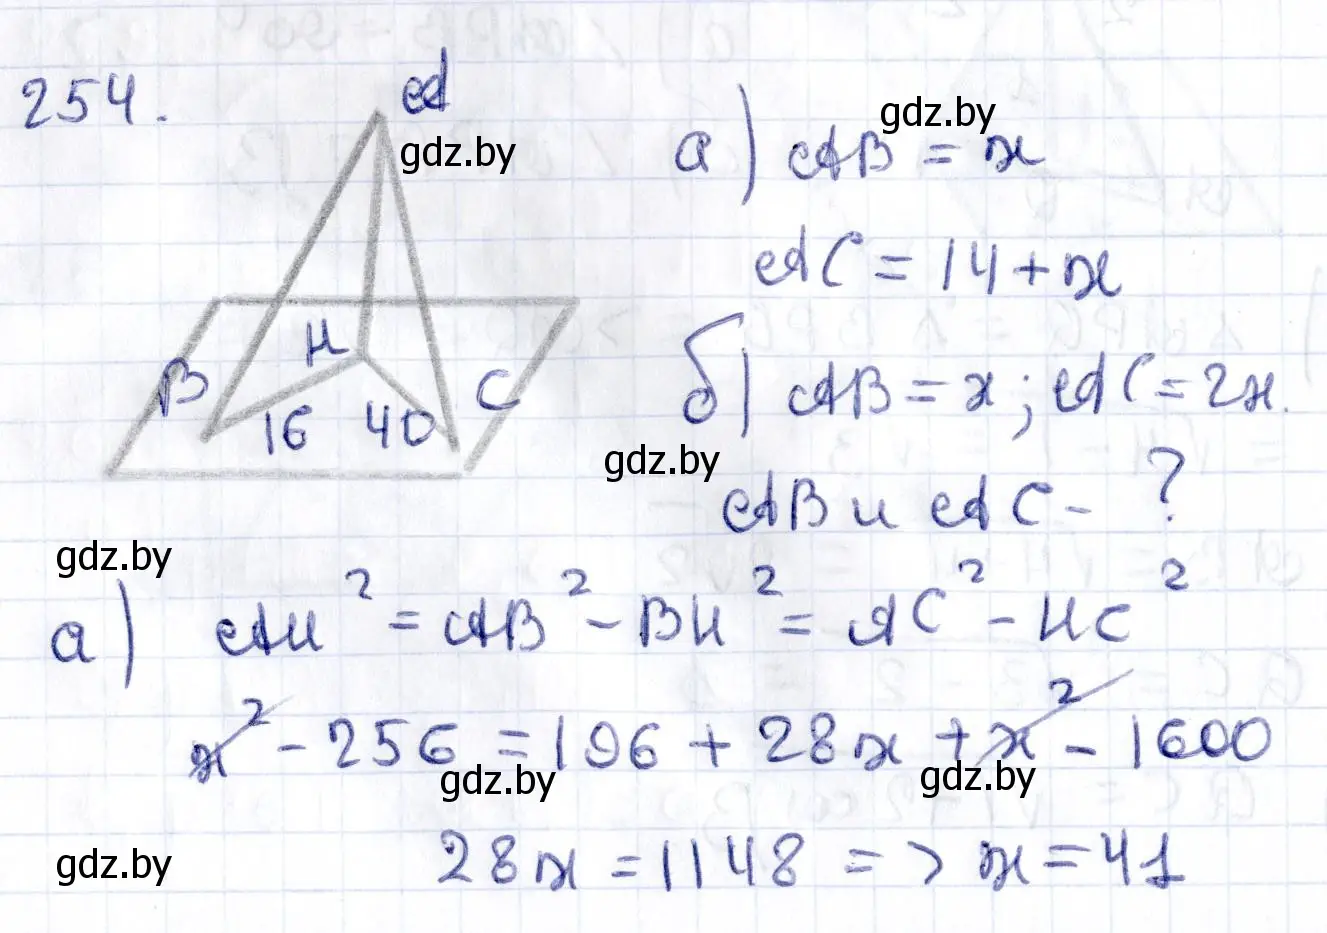 254.
A
gdz.by
gdz.by
а) AB = x
AC = 14 + x
H
B
C
16
40
б) AB = x; AC = 2x.
gdz.by
AB и AC - ?
gdz.by
а) AH² = AB² - BH² = AC² - HC²
x² - 256 = 196 + 28x + x² - 1600
gdz.by
gdz.by
gdz.by
28x = 1148 => x = 41